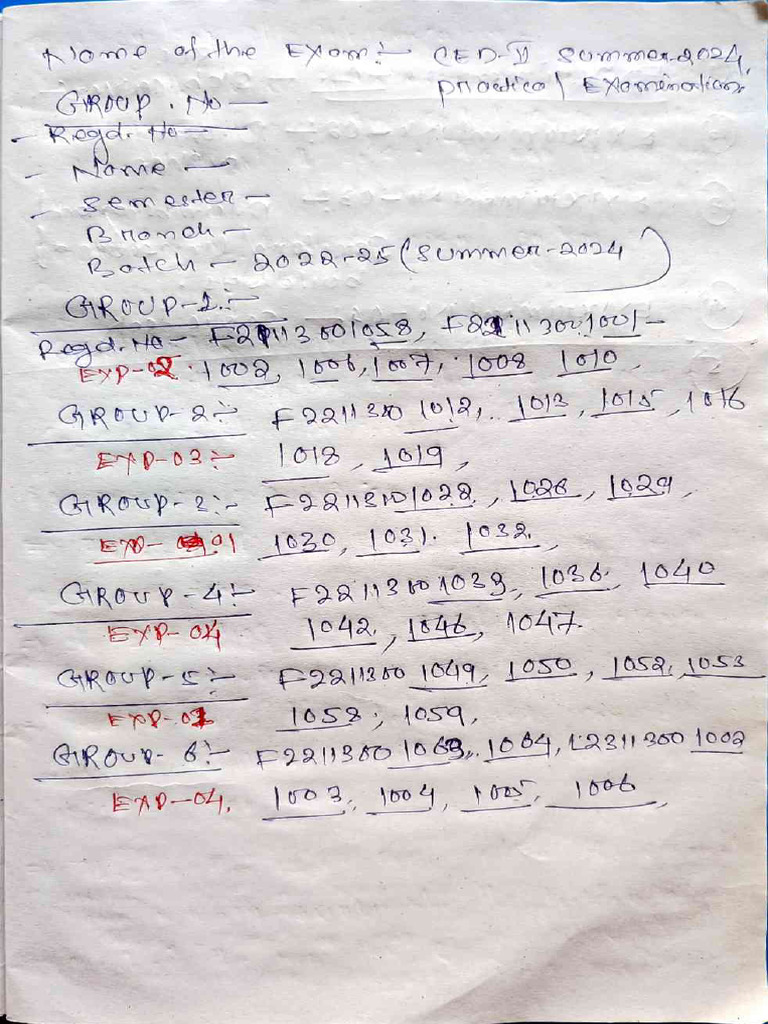 Name of the Exam:- CED-II Summer-2024,
Practical Examination.
GROUP. No —
- Regd. No —
- Name —
- Semester —
Branch —
Batch — 2022-25 (Summer-2024)
GROUP-1:-
Regd. No- F21113001058, F22113001001-
EXP-02 1002, 1006, 1007, 1008 1010,
GROUP-2:- F2211300 1012, 1013, 1015, 1016
EXP-03:- 1018, 1019,
GROUP-3:- F22113001022, 1026, 1029,
EXP- 01 1030, 1031. 1032,
GROUP-4:- F2211300 1039, 1036, 1040
EXP-04 1042, 1046, 1047.
GROUP-5:- F2211300 1049, 1050, 1052, 1053
EXP-02 1058, 1059,
GROUP-6:- F2211300 1063, 1064, L2311300 1002
EXP-04, 1003, 1004, 1005, 1006,